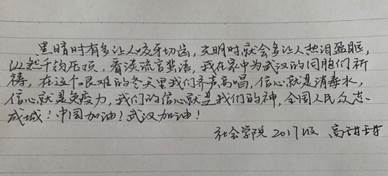 黑暗时有多让人咬牙切齿，文明时就会多让人热泪盈眶，
看流言蜚语，我在家中为武汉的同胞们祈
祷，在这个艰难的冬天里我们齐声高唱，信心就是消毒水，
信心就是免疫力，我们的信心就是我们的神，全国人民众志
成城！中国加油！武汉加油！
社会学院 2017级 高甜甜